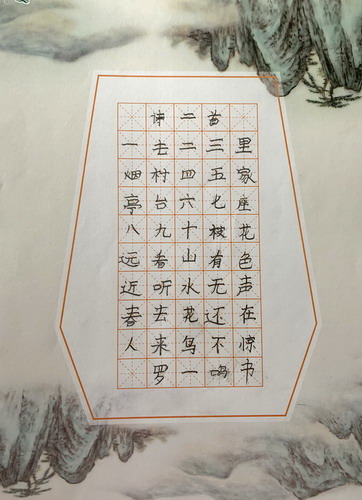 诗二首
一去二三里
烟村四五家
亭台六七座
八九十枝花
远看山有色
近听水无声
春去花还在
人来鸟不惊
罗一鸣书